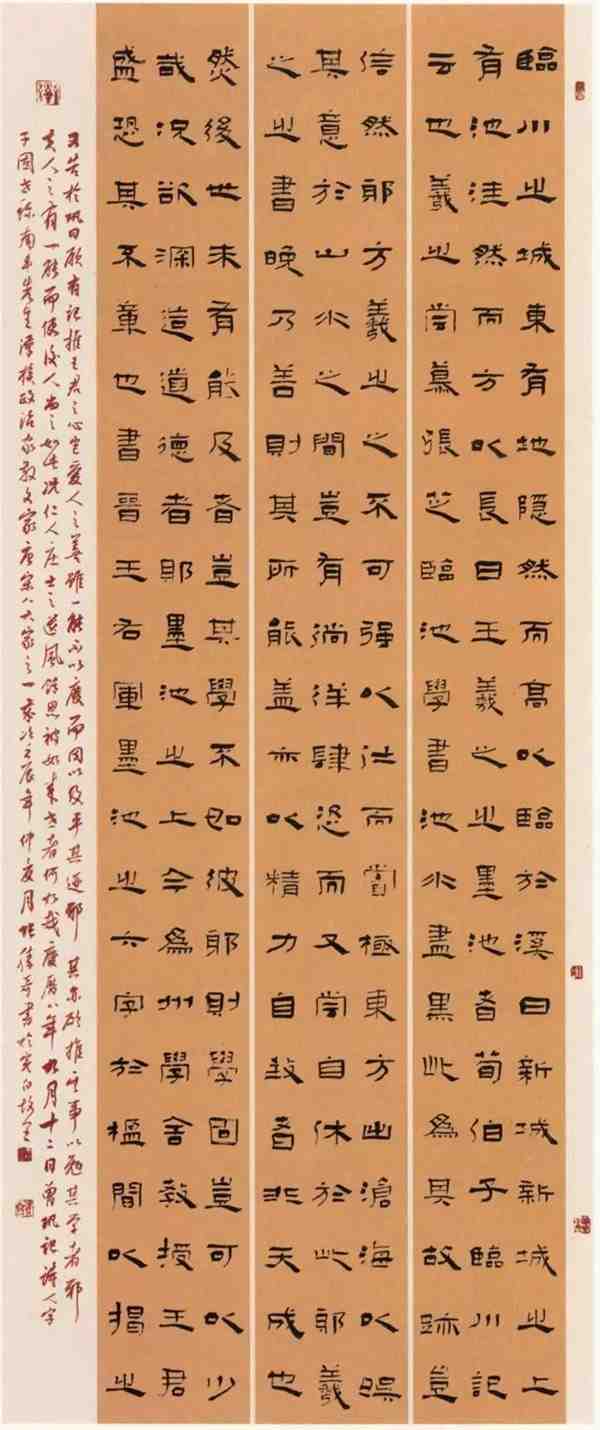 臨川之城東有地隱然而高以臨於溪曰新城新城之上
有池洼然而方以長曰王羲之之墨池者荀伯子臨川記
云也羲之嘗慕張芝臨池學書池水盡黑此為其故跡豈
信然耶方羲之之不可强以仕而嘗極東方出滄海以娛
其意於山水之間豈有徜徉肆恣而又嘗自休於此耶羲
之之書晚乃善則其所能盖亦以精力自致者非天成也
然後世未有能及者豈其學不如彼耶則學固豈可以少
哉況欲深造道德者耶墨池之上今為州學舍教授王君
盛恐其不章也書晉王右軍墨池之六字於楹間以揭之
又告於鞏曰願有記推王君之心豈愛人之善雖一能不以廢而因以及乎其迹邪其亦欲推其事以勉其學者邪
夫人之有一能而使後人尚之如此況仁人莊士之遺風餘思被於來世者何如哉慶曆八年九月十二日曾鞏記
子固世稱南豐先生政治家散文家唐宋八大家之一歲次壬辰年仲夏月書於